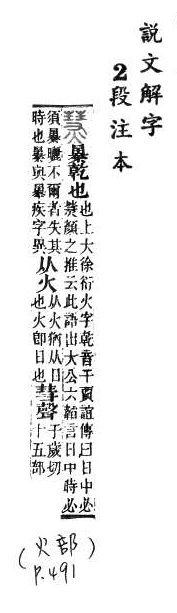 說文解字
2段注本
熭 暴乾也
也上大徐衍火字乾音干賈誼傳曰日中必
熭顏之推云此語出大公六韜言日中時必
須暴曬不爾者失其
時也暴與暴疾字異
从火
从火猶从日
也火即日也
彗聲
于歲切
十五部
(火部)
P.491